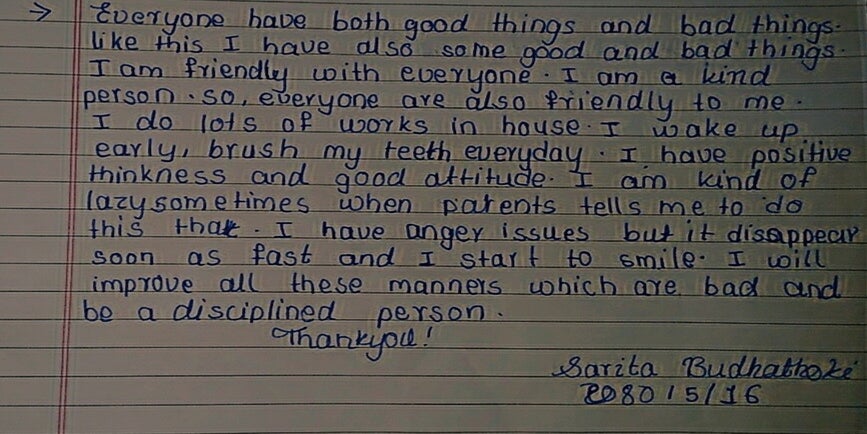 → Everyone have both good things and bad things.
like this I have also some good and bad things.
I am friendly with everyone. I am a kind
person. so, everyone are also friendly to me.
I do lots of works in house. I wake up
early, brush my teeth everyday. I have positive
thinkness and good attitude. I am kind of
lazy sometimes when parents tells me to do
this that. I have anger issues but it disappear
soon as fast and I start to smile. I will
improve all these manners which are bad and
be a disciplined person.
Thankyou!
Sarita Budhathoki
2080/5/16